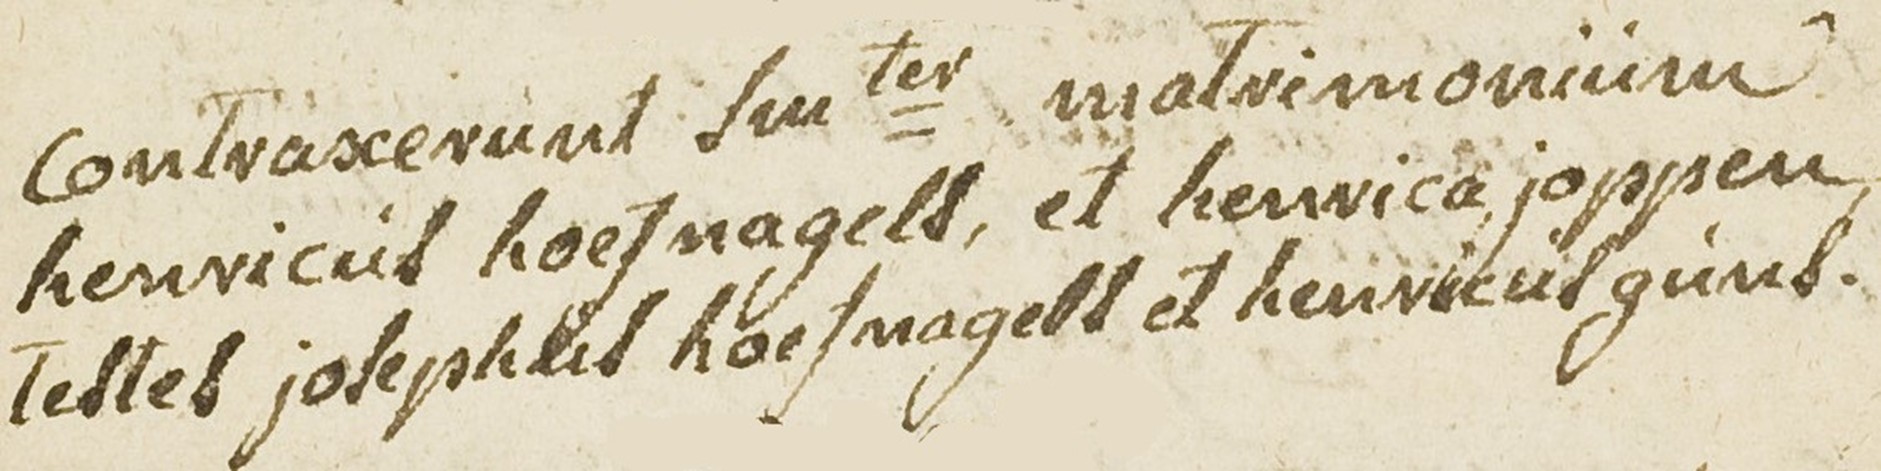 Contraxerunt Sm ter matrimonium
henricus hoefnagels, et henrica joppen,
Testes josephus hoefnagels et henricus guns.